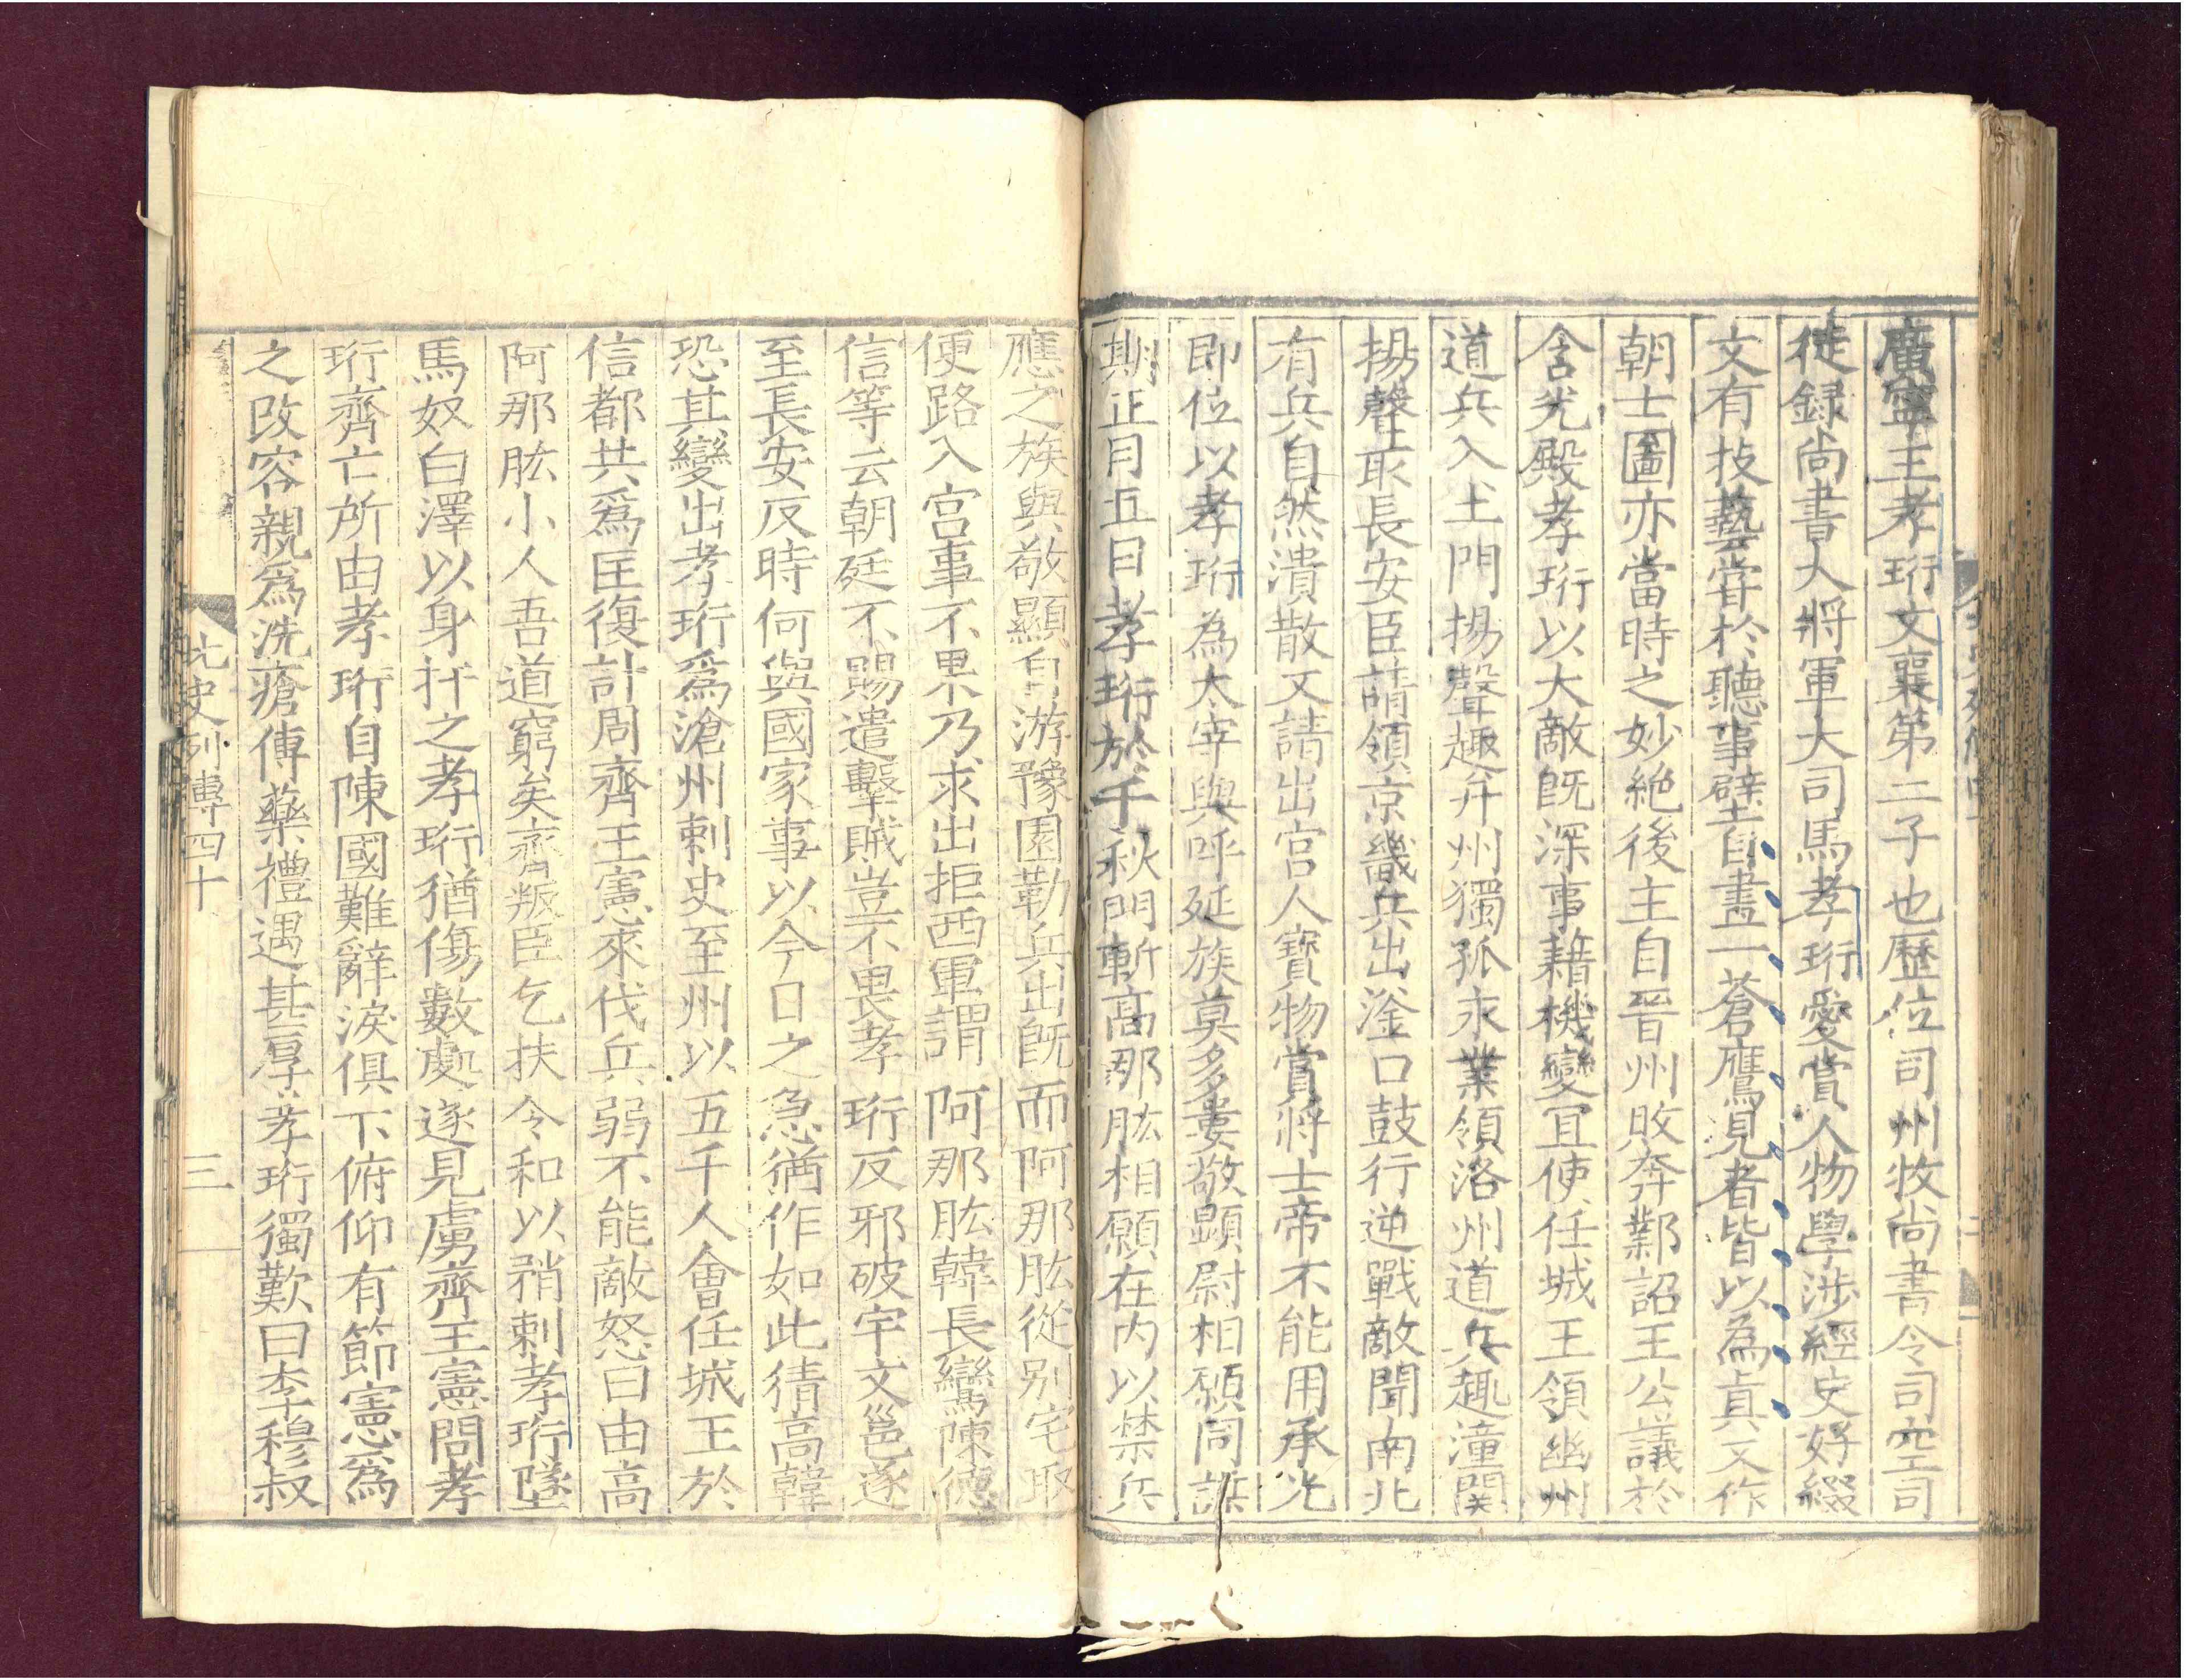 廣寧王孝珩文襄第二子也歷位司州牧尚書令司空司
徒録尚書大將軍大司馬孝珩愛賞人物學涉經史好綴
文有技藝甞於聽事壁自畫一蒼鷹見者皆以為真又作
朝士圖亦當時之妙絶後主自晉州敗奔鄴詔王公議於
含光殿孝珩以大敵旣深事藉機變宜使任城王領幽州
道兵入土門揚聲趣并州獨孤永業領洛州道兵趣潼關
揚聲取長安臣請領京畿兵出滏口鼓行逆戰敵聞南北
有兵自然潰散又請出宫人寶物賞將士帝不能用承光
即位以孝珩為太宰與呼延族莫多婁敬顯尉相願同謀
期正月五日孝珩於千秋門斬高那肱相願在内以禁兵
應之族與敬顯自游豫園勒兵出旣而阿那肱從别宅取
便路入宫事不果乃求出拒西軍謂阿那肱韓長鸞陳德
信等云朝廷不賜遣擊賊豈不畏孝珩反邪破宇文邕遂
至長安反時何與國家事以今日之急猶作如此猜高韓
恐其變出孝珩爲滄州刺史至州以五千人會任城王於
信都共爲匡復計周齊王憲來伐兵弱不能敵怒曰由高
阿那肱小人吾道窮矣齊叛臣乞扶令和以矟刺孝珩墜
馬奴白澤以身扞之孝珩猶傷數處遂見虜齊王憲問孝
珩齊亡所由孝珩自陳國難辭淚俱下俯仰有節憲爲
之改容親爲洗瘡傅藥禮遇甚厚孝珩獨歎曰李穆叔
北史列傳四十
三